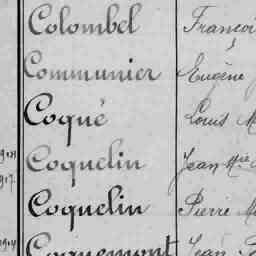 Colombel Françoi
Communier Eugène
Coqué Louis M
Coquelin Jean Mie
Coquelin Pierre M
Coquemont Jean